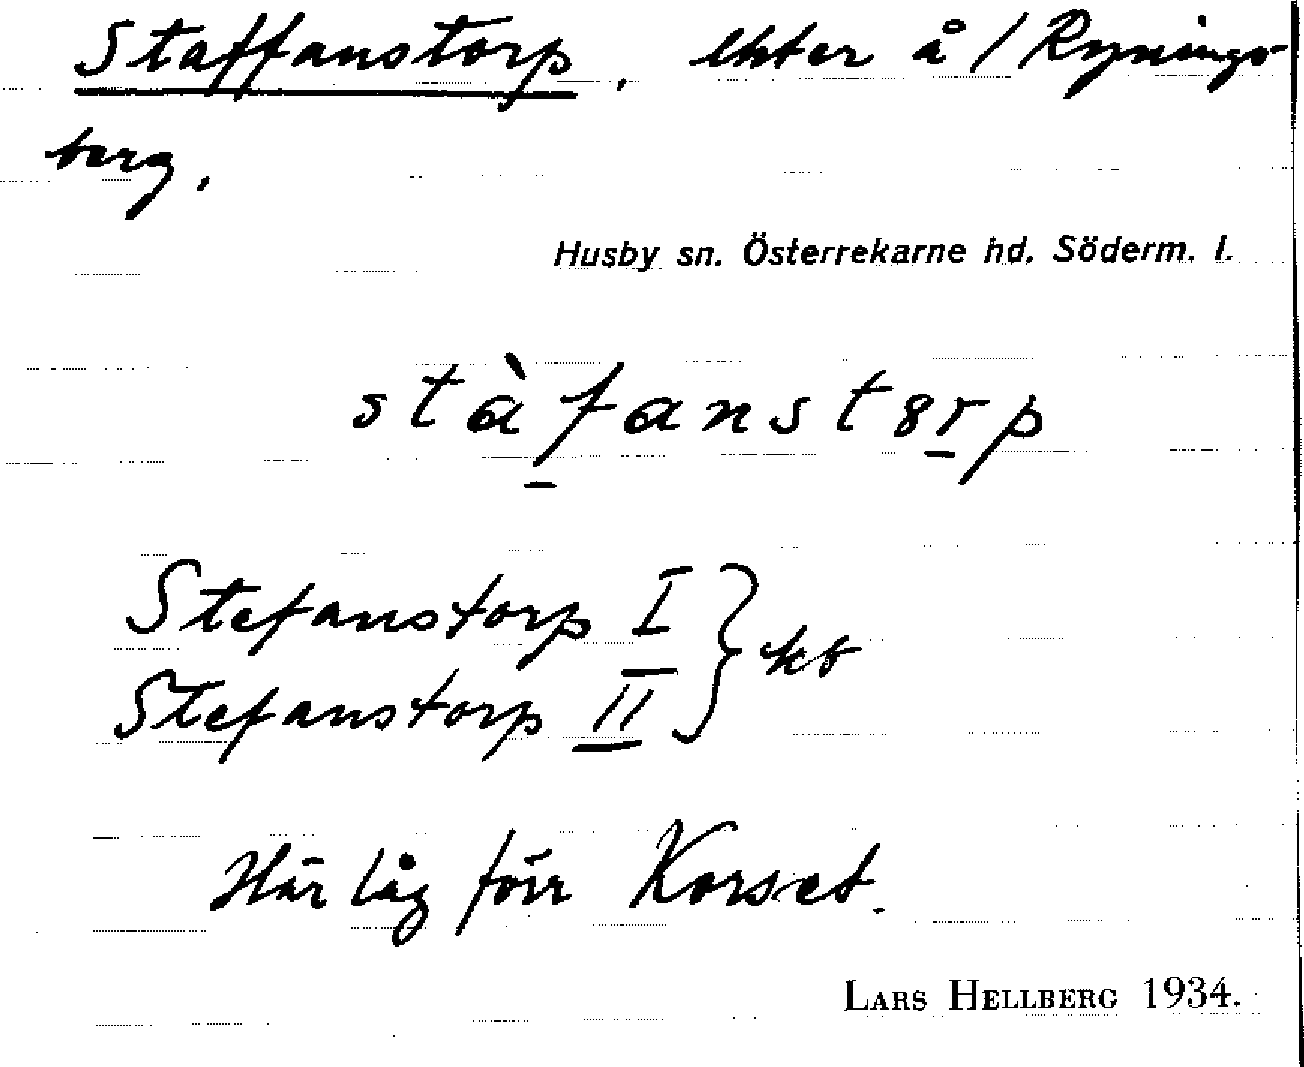 Staffanstorp, lht er å / Rynings-
berg.
Husby sn. Österrekarne hd. Söderm. l.
stàfanst8rp
Stefanstorp I
Stefanstorp II } kt
Här låg förr Korset.
LARS HELLBERG 1934.